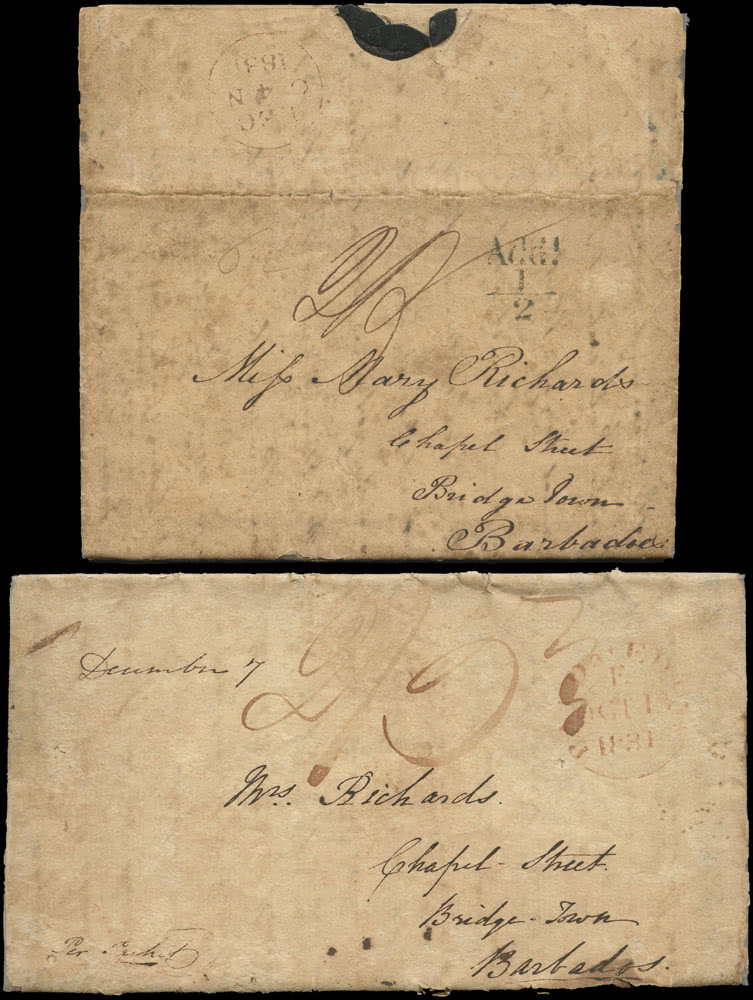 183
4 N
Add!
1
2
Miſs Mary Richards
Chapel Street
Bridge Town
Barbadoes
December 7
2/3
OCT 15
1831
Mrs. Richards.
Chapel Street.
Bridge-Town
Barbados.
Per Packet